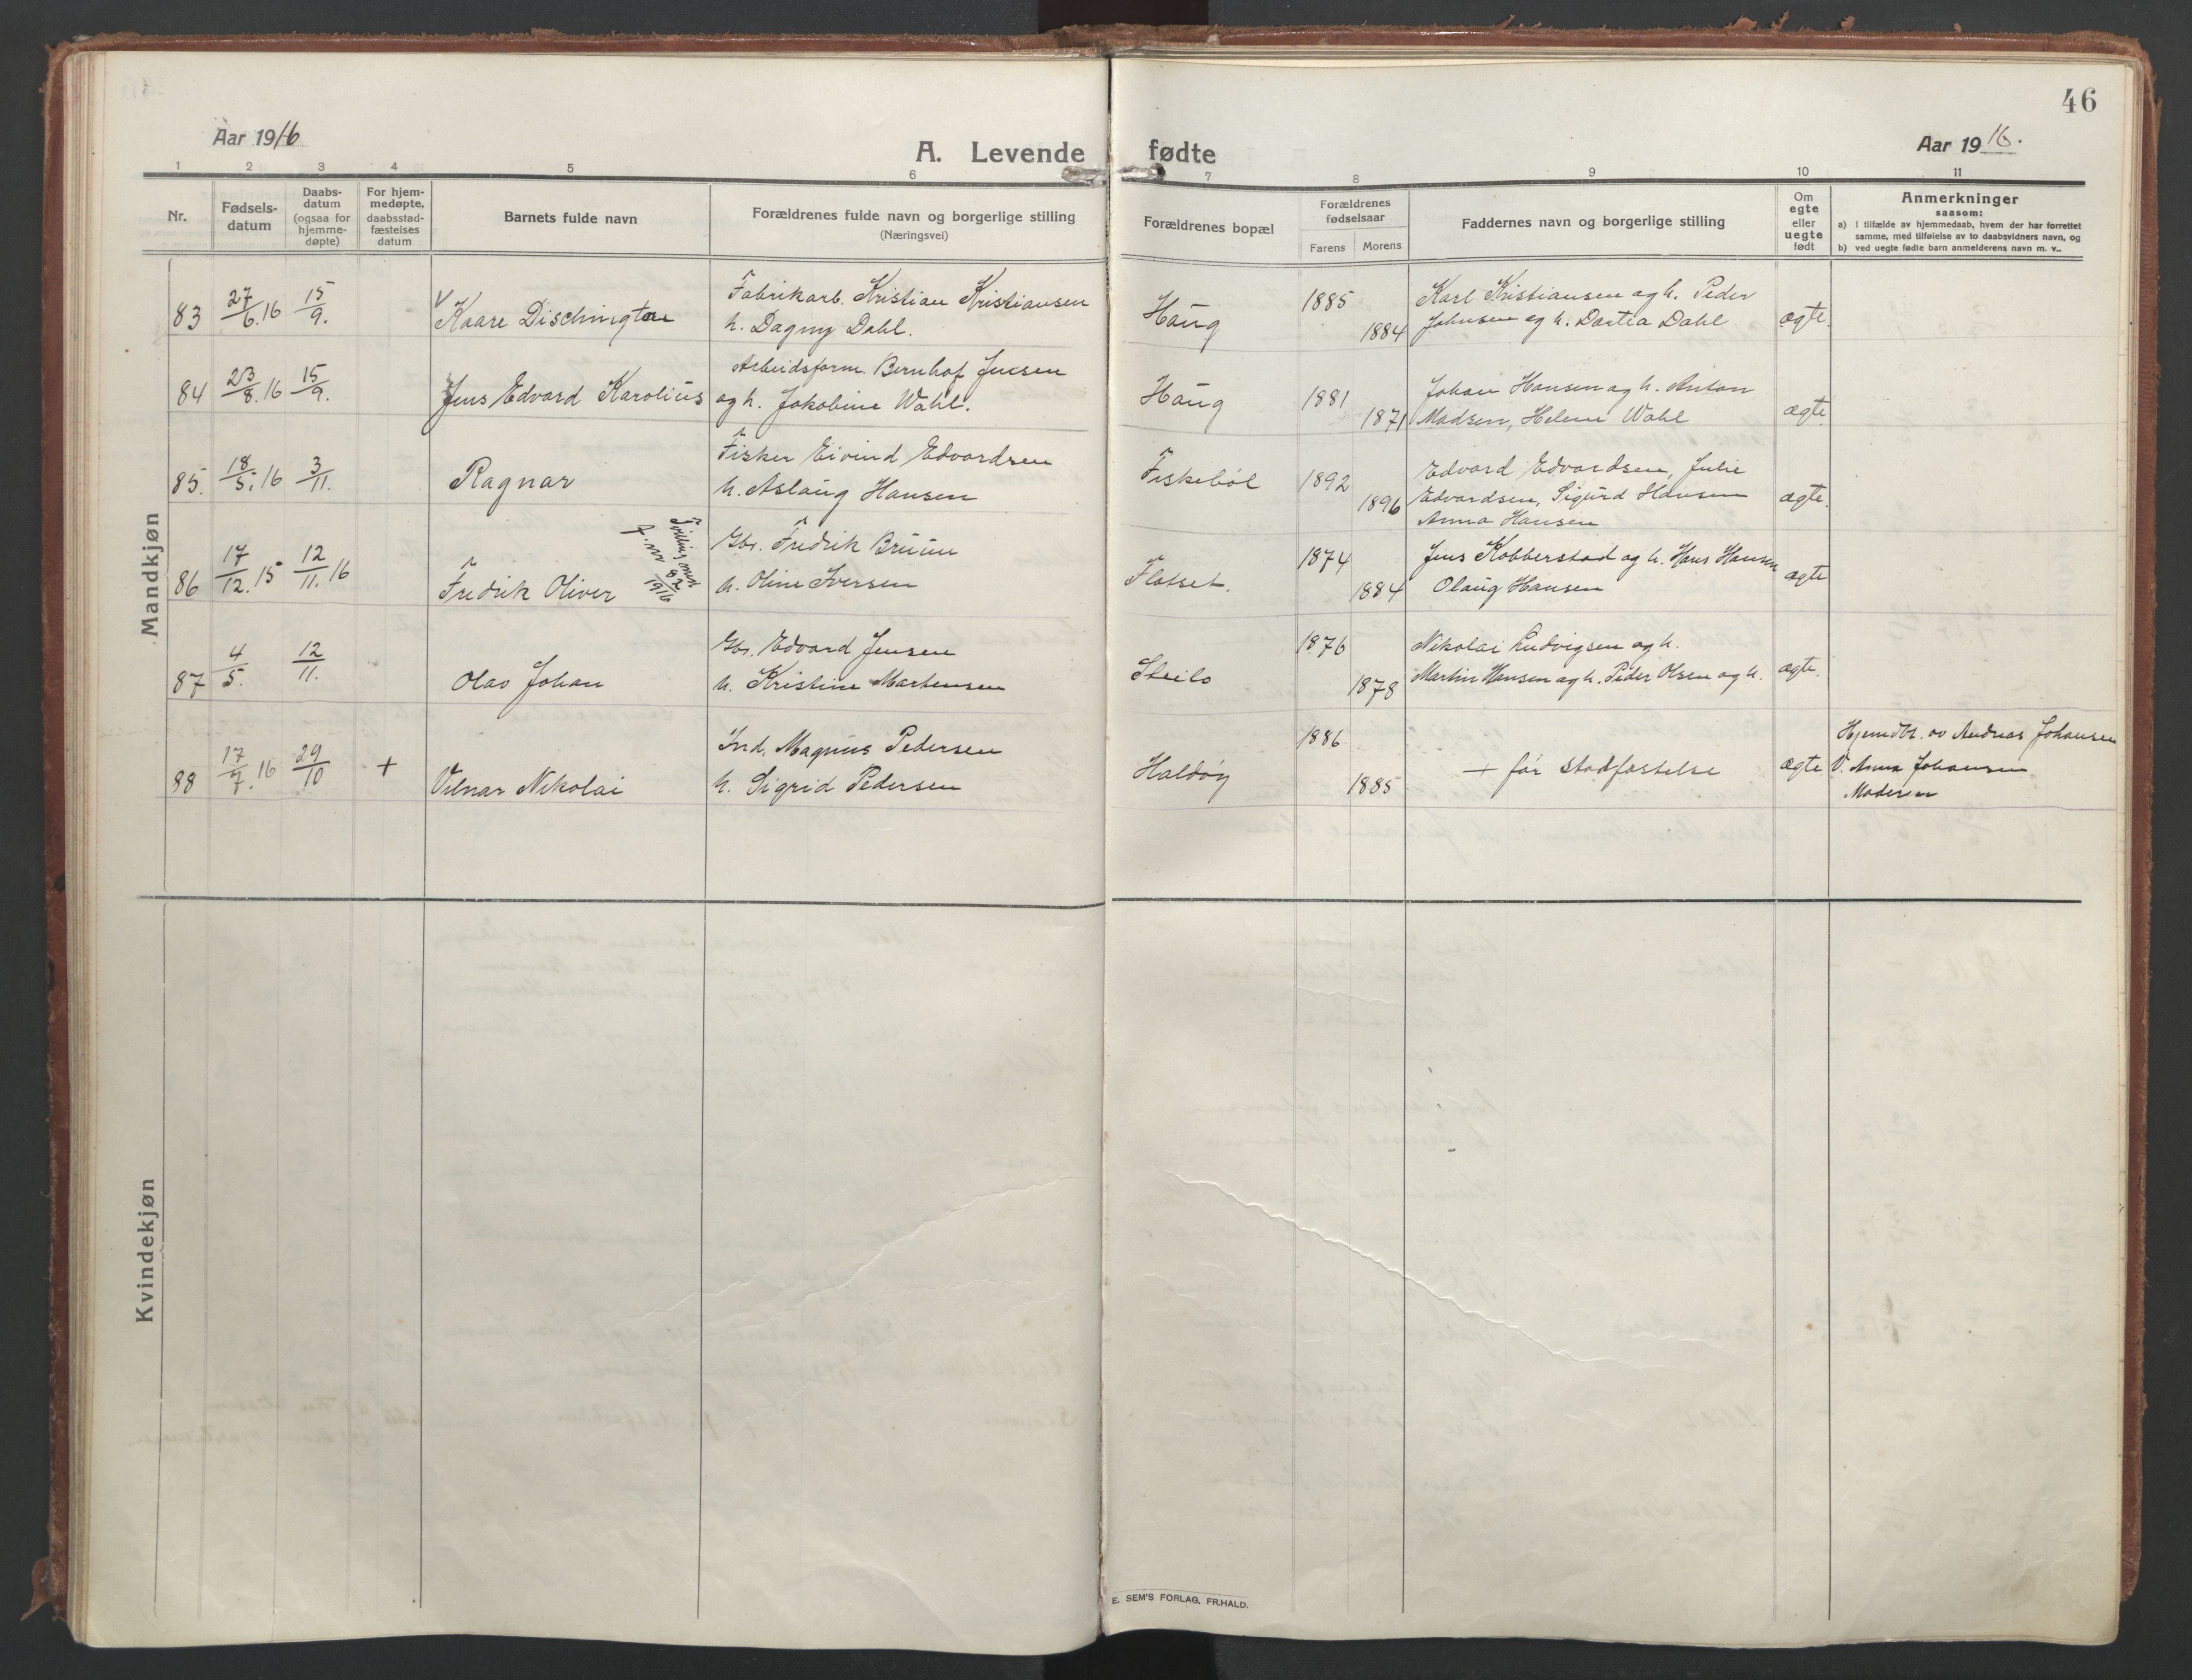 46
Aar 1916
A. Levende fødte
Aar 1916.
1 2 3 4 5 6 7 8 9 10 11
Nr.
Fødsels-
datum
Daabs-
datum
(ogsaa for
hjemme-
døpte)
For hjem-
medøpte,
daabsstad-
fæstelses
datum
Barnets fulde navn
Forældrenes fulde navn og borgerlige stilling
(Næringsvei)
Forældrenes bopæl
Forældrenes
fødselsaar
Farens Morens
Faddernes navn og borgerlige stilling
Om
egte
eller
uegte
født
Anmerkninger
saasom:
a) i tilfælde av hjemmedaab, hvem der har forrettet
samme, med tilføielse av to daabsvidners navn, og
b) ved uegte fødte barn anmelderens navn m. v..
Mandkjøn
83 27/6.16 15/9. Kaare Dischington
Fabrikarb. Kristian Kristiansen
h. Dagny Dahl.
Haug 1885 1884
Karl Kristiansen og h. Peder
Johnsen og h. Dortea Dahl
ægte.
84 23/8.16 15/9. Jens Edvard Karolius
Arbeidsform. Bernhof Jensen
og h. Jakobine Wahl.
Haug 1881 1871
Johan Hansen og h. Anton
Madsen, Helene Wahl
ægte.
85. 18/5.16 3/11. Ragnar
Fisker Eivind Edvardsen
h. Aslaug Hansen
Fiskeböl 1892 1896
Edvard Edvardsen, Julie
Edvardsen, Sigurd Hansen
Anna Hansen
ægte.
86 17/12.15 12/11.16 Fredrik Oliver
Tvilling med
f. nr 82
1916
Gbr. Fredrik Bruun
h. Oline Iversen
Flatset. 1874 1884
Jens Kobberstad og h. Hans Hansen
Olaug Hansen
ægte
87 4/5. 12/11. Olav Johan
Gbr. Edvard Jensen
h. Kristine Martensen
Steilo 1876 1878
Nikolai Ludvigsen og h.
Martin Hansen og h. Peder Olsen og h.
ægte.
88 17/7.16 29/10 + Vilnar Nikolai
Ind. Magnus Pedersen
h. Sigrid Pedersen
Haldöy 1886 1885
+ før stadfæstelse
ægte
Hjemdbt. av Andreas Johansen
V. Anna Johansen
Moderen
Kvindekjøn
E. SEM'S FORLAG, FR.HALD.